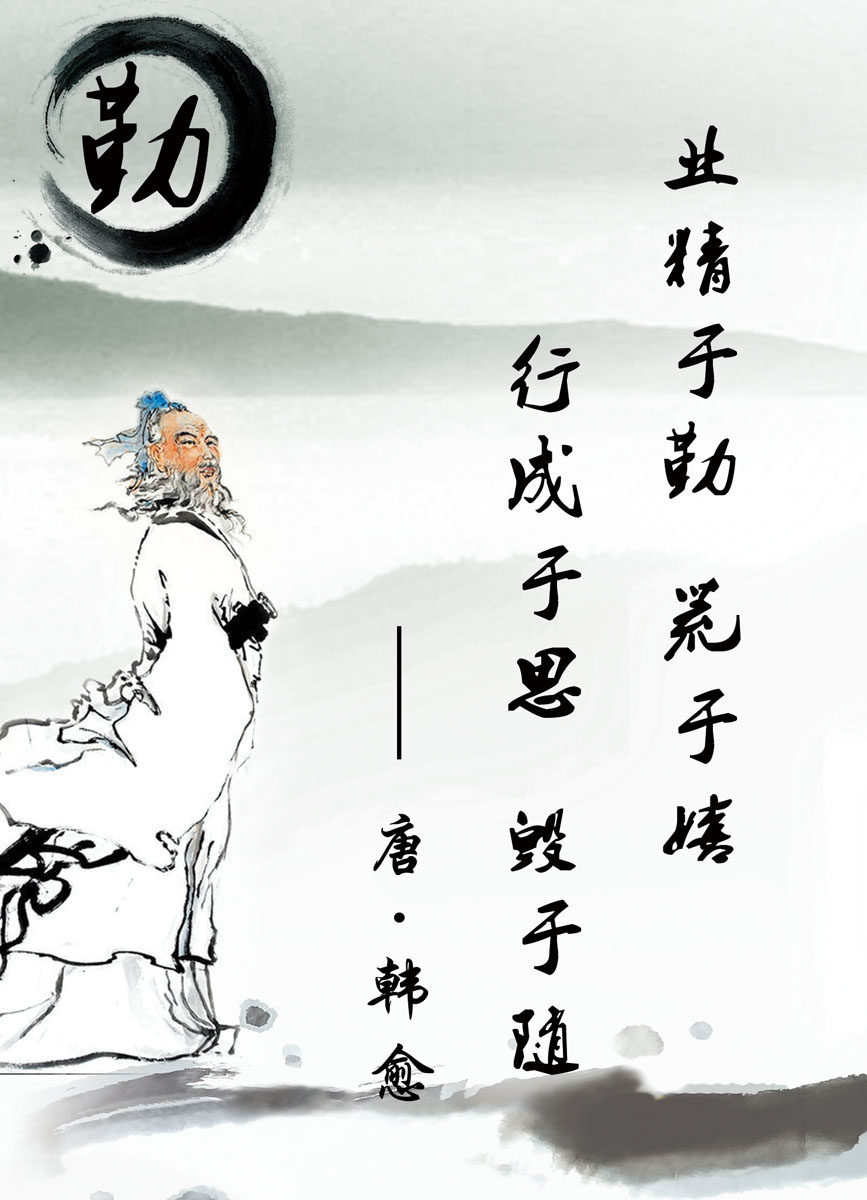 勤
业精于勤 荒于嬉
行成于思 毁于随
——唐·韩愈